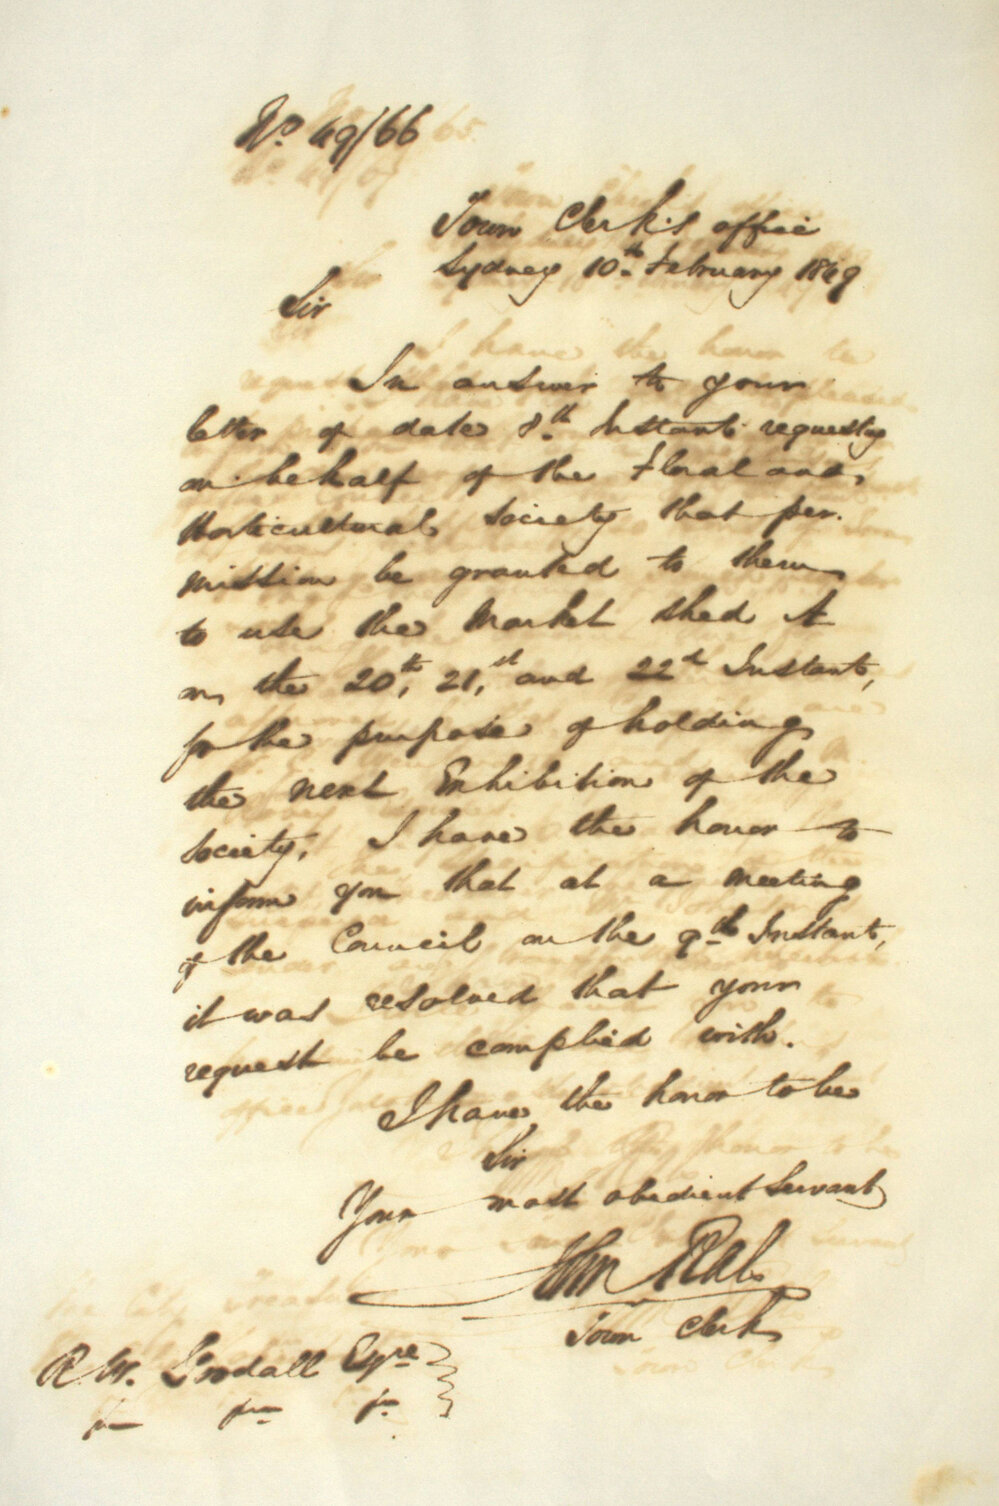 No. 49/66
Town Clerk's office
Sydney 10th February 1849
Sir
In answer to your
letter of date 8th Instant requesting
on behalf of the Floral and
Horticultural Society that per.
mission be granted to them
to use the Market shed A
on the 20th, 21,st and 22d Instant,
for the purpose of holding
the next Exhibition of the
Society, I have the honor to
inform you that at a meeting
of the Council on the 9th Instant,
it was resolved that your
request be complied with.
I have the honor to be
Sir
Your most obedient Servant
John
Town Clerk
R. W. Goodall Esqre